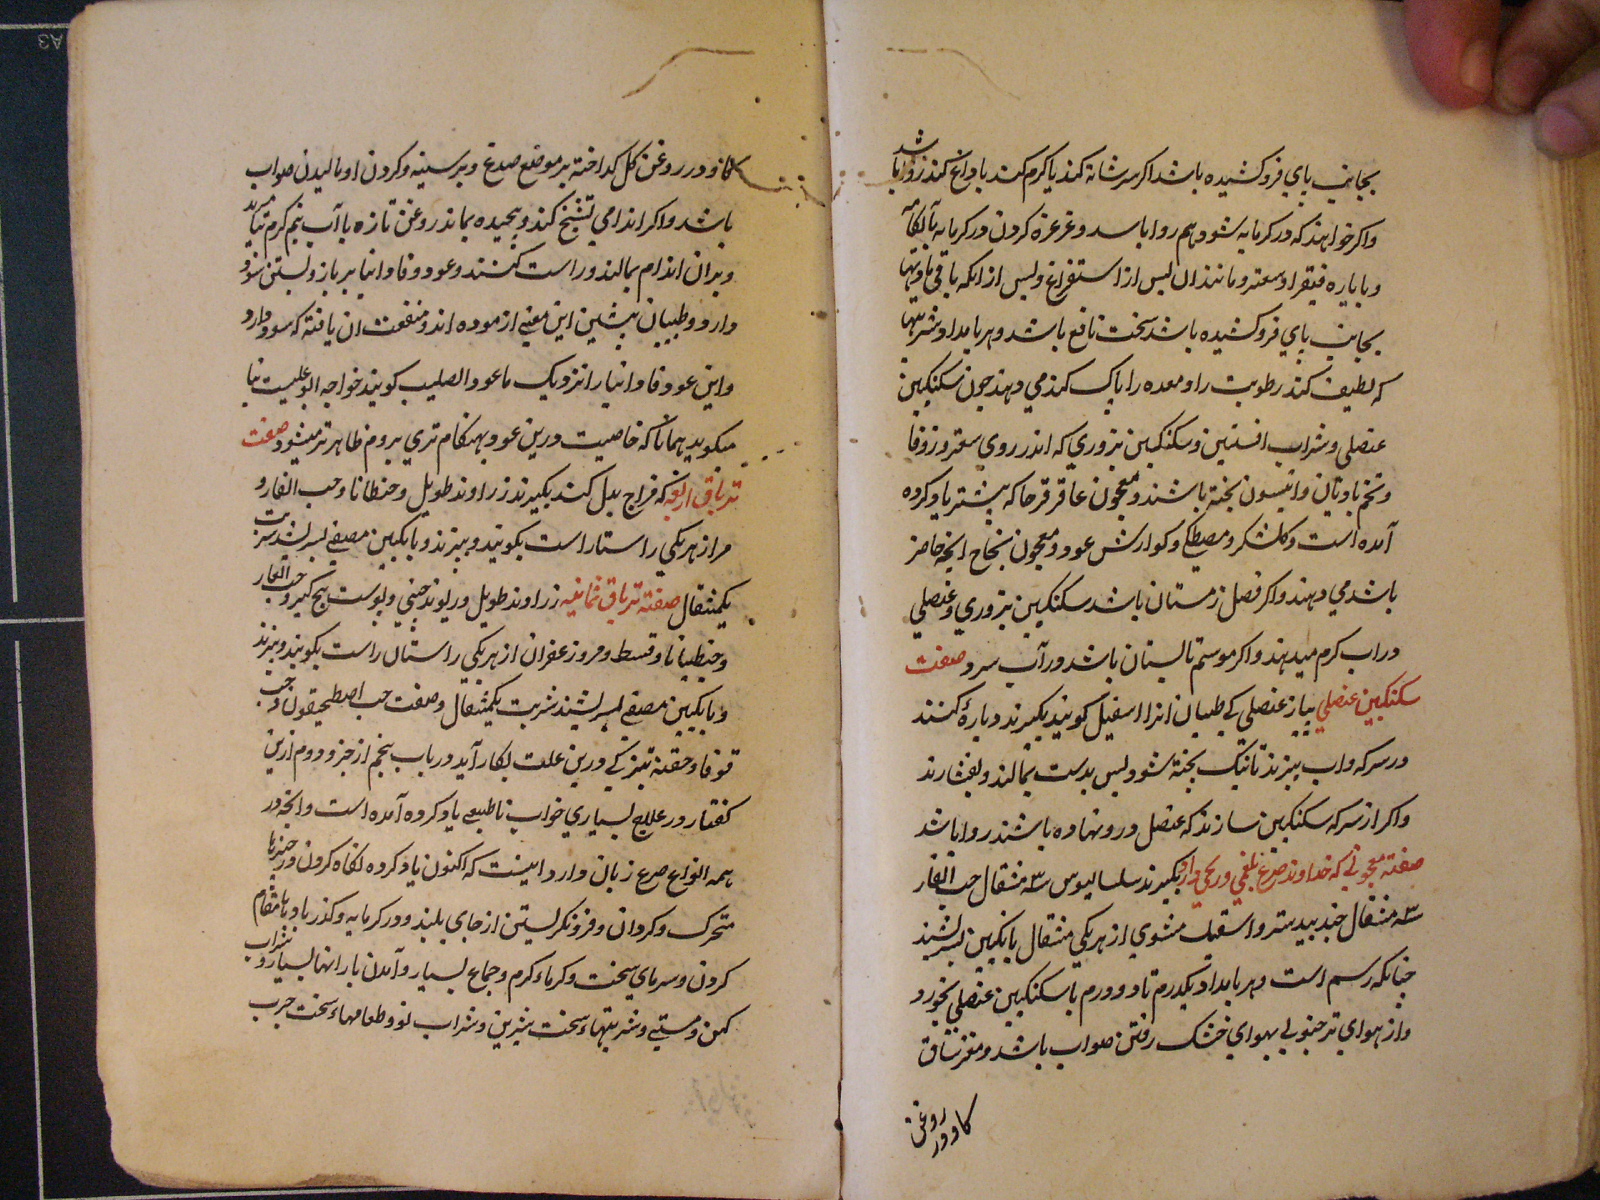 بجانب پاي فروکشیده باشد اکر سر شانه کند یا کرم کند یا داغ کند روا باشد
واکر خواهند که در کرمابه شود هم روا باشد و غرغره کردن در کرمابه بآبکامه
و بایاره فیقرا و سعتر و مانند ان پس از استفراغ و پس از انکه باقی مادتها
بجانب پاي فروکشیده باشد سخت نافع باشد و هر بامداد شربتها
که لطیف کند رطوبت را و معده را پاک کند می دهند چون سکنکبین
عنصلی و شراب افسنتین و سکنکبین بزوري که اندر روي سعتر و زوفا
و تخم بادیان و انیسون پخته باشند و معجون عاقرقرحا که پیشتر یاد کرده
آمده است و کلشکر و مصطکی و کوارش عود و معجون نجاح انچه حاضر
باشد می دهند واکر فصل زمستان باشد سکنکبین بزوري و عنصلی
در اب کرم میدهند واکر موسم تابستان باشد در آب سرد صفت
سکنکبین عنصلي پیاز عنصلی که طبیبان انرا اسقیل کویند بکیرند و پاره کنند
و در سرکه و اب بپزند تا نیک پخته شود پس بدست بمالند و بفشارند
واکر از سرکه سکنکبین سازند که عنصل درو نهاده باشند روا باشد
صفة معجونی که خداوند صرع بلغمي و ریحي را دهد بکیرند سلسالیوس سه مثقال حب الغار
سه مثقال جندبیدستر و اسقیل مشوي از هریکي مثقال بانکبین بسرشند
چنانکه رسم است و هر بامداد یکدرم تا دو درم با سکنکبین عنصلي بخورد
واز هواي تر جنوبي بهواي خشک رفتن صواب باشد و مغز ساق
کاو در روغن
کاو در روغن کل کداخته بر موضع صدغ و بر سینه و کردن او مالیدن صواب
باشد واکر اندامي تشنج کند و پیچیده بماند روغن تازه با آب نیم کرم بیامیزند
و بران اندام بمالند و راست کنند و عود فاوانیا بر بازو بستن سود
دارد و طبیبان پیشین این معنی ازموده اند و منفعت ان یافته که سود دارد
واین عود فاوانیا را نزدیک ما عود الصلیب کویند خواجه ابو علي سینا
میکوید همانا که خاصیت درین عود بهنکام تري بروم ظاهرتر میشود صفت
تریاق اربعه که مزاج بدل کند بکیرند زراوند طویل و جنطیانا و حب الغار و
مر از هریکي راستاراست بکوبند و بپزند و بانکبین مصفي بسرشند شربت
یکمثقال صفة تریاق ثمانیه زراوند طویل و ریوند چیني و پوست بیخ کبر و حب الغار
و جنطیانا و قسط و مر و زعفران از هریکي راستاراست بکوبند و بپزند
و بانکبین مصفي بسرشند شربت یکمثقال و صفت حب اصطمخیقون و حب
قوقایا و حقنه تیز که درین علت بکار آید در باب پنجم از جزو دوم ازین
کفتار در علاج بسیاري خواب ناطبیعي یاد کرده آمده است وانچه در
همه انواع صرع زیان دارد اینست که اکنون یاد کرده نکاه کردن در چیزها
متحرک و کردان و فرو نکریستن از جاي بلند و در کرمابه و کذر بادها مقام
کردن و سرماي سخت و کرما کرم و جماع بسیار و آمدن بارانها بسیار و شراب
کهن و مستي و شربتهاء سخت شیرین و شراب نو و طعامهاء سخت چرب